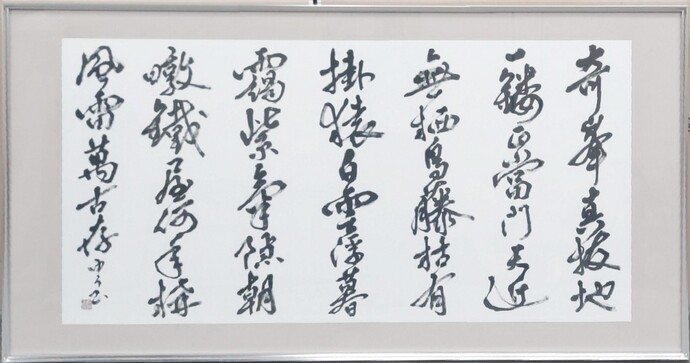 奇峯真拔地
一鏤正當門天近
無栖鳥藤枯有
掛猿白雲浮暮
靄紫氣隱朝
暾鐵屋何年構
風雷萬古存